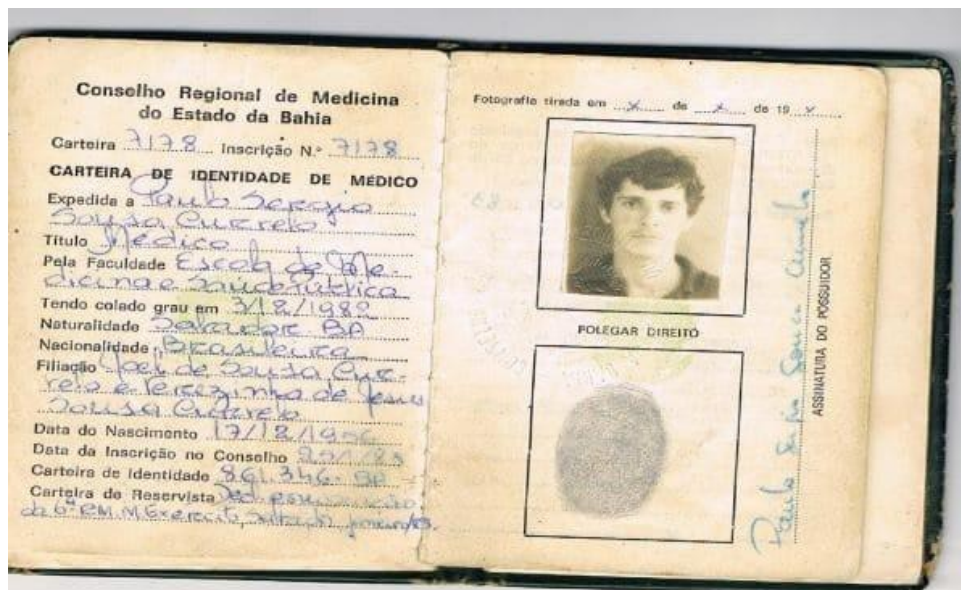 Conselho Regional de Medicina
do Estado da Bahia
Carteira 7178 Inscrição N.º 7178
CARTEIRA DE IDENTIDADE DE MÉDICO
Expedida a Paulo Sergio
Sousa Currelo
Titulo Médico
Pela Faculdade Escola de Me-
dicina e Saúde Pública
Tendo colado grau em 3/12/1982
Naturalidade Salvador BA
Nacionalidade Brasileira
Filiação Joel de Sousa Cur-
relo e Terezinha de Jesus
Sousa Currelo
Data do Nascimento 17/12/
Data da Inscrição no Conselho
Carteira de Identidade 861.346-BA
Carteira de Reservista
da 6ª RM. M. Exercito,
Fotografia tirada em x de x de 19 x
POLEGAR DIREITO
ASSINATURA DO POSSUIDOR
Paulo Sergio Sousa